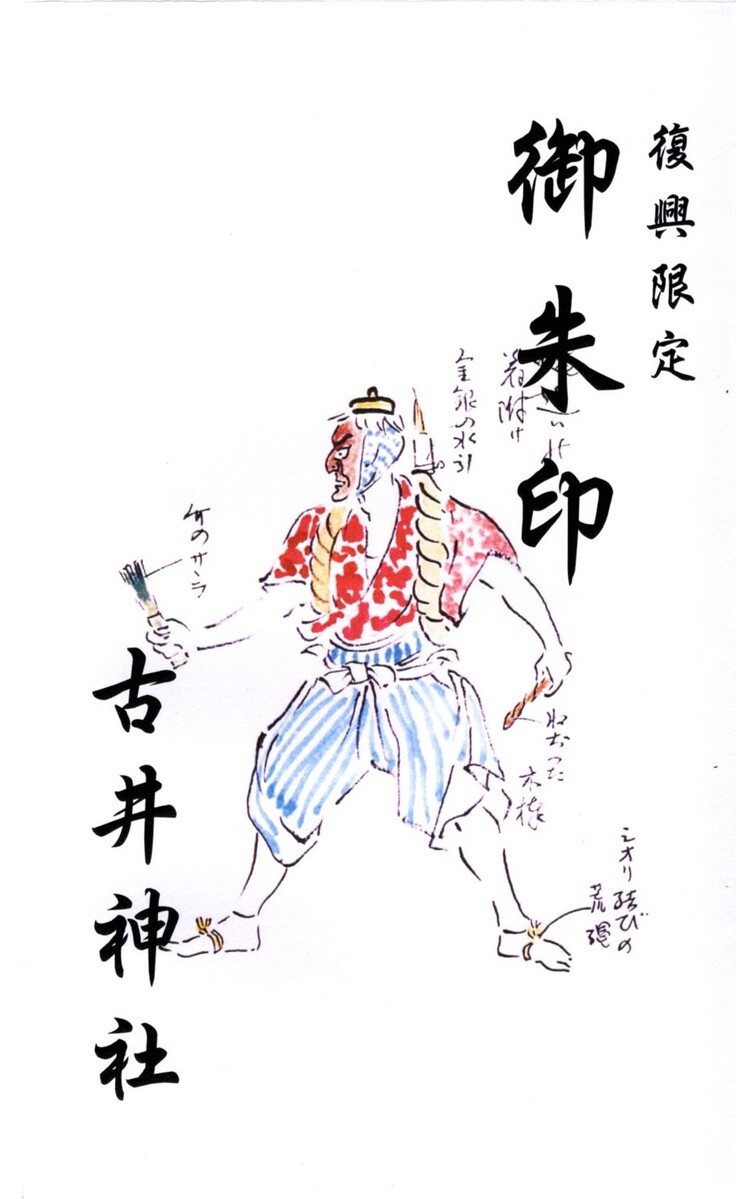 復興限定
御朱印
着附け
金銀の水引
竹のササラ
ねぢつた
木棒
シオリ結びの
荒縄
古井神社